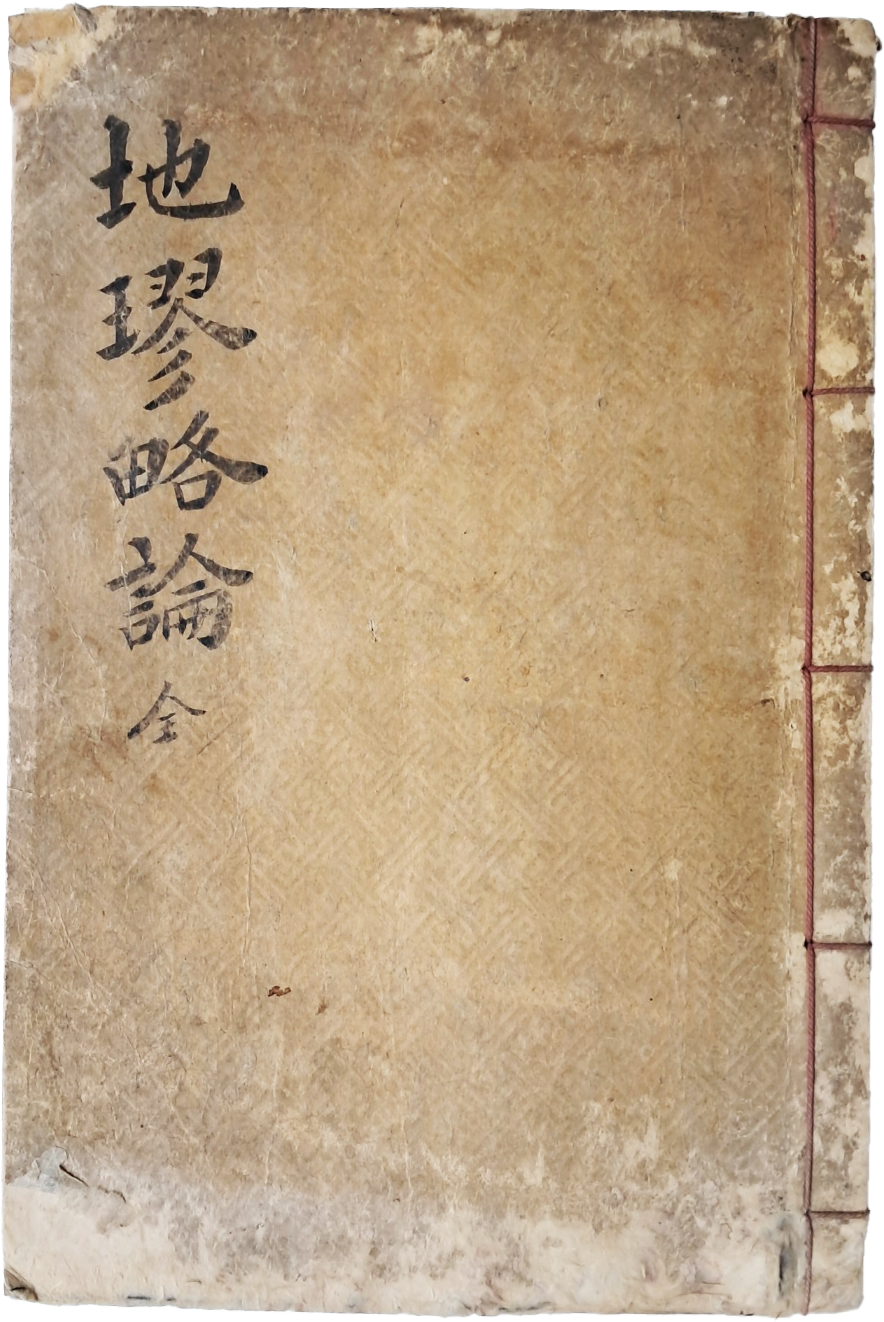 地璆略論 全